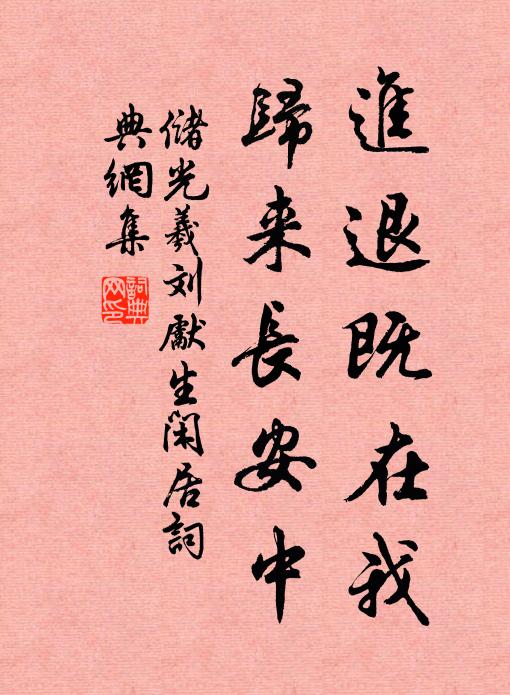 進退既在我
歸来長安中
儲光羲刘獻生閑居詞
典網集
詞典
网印